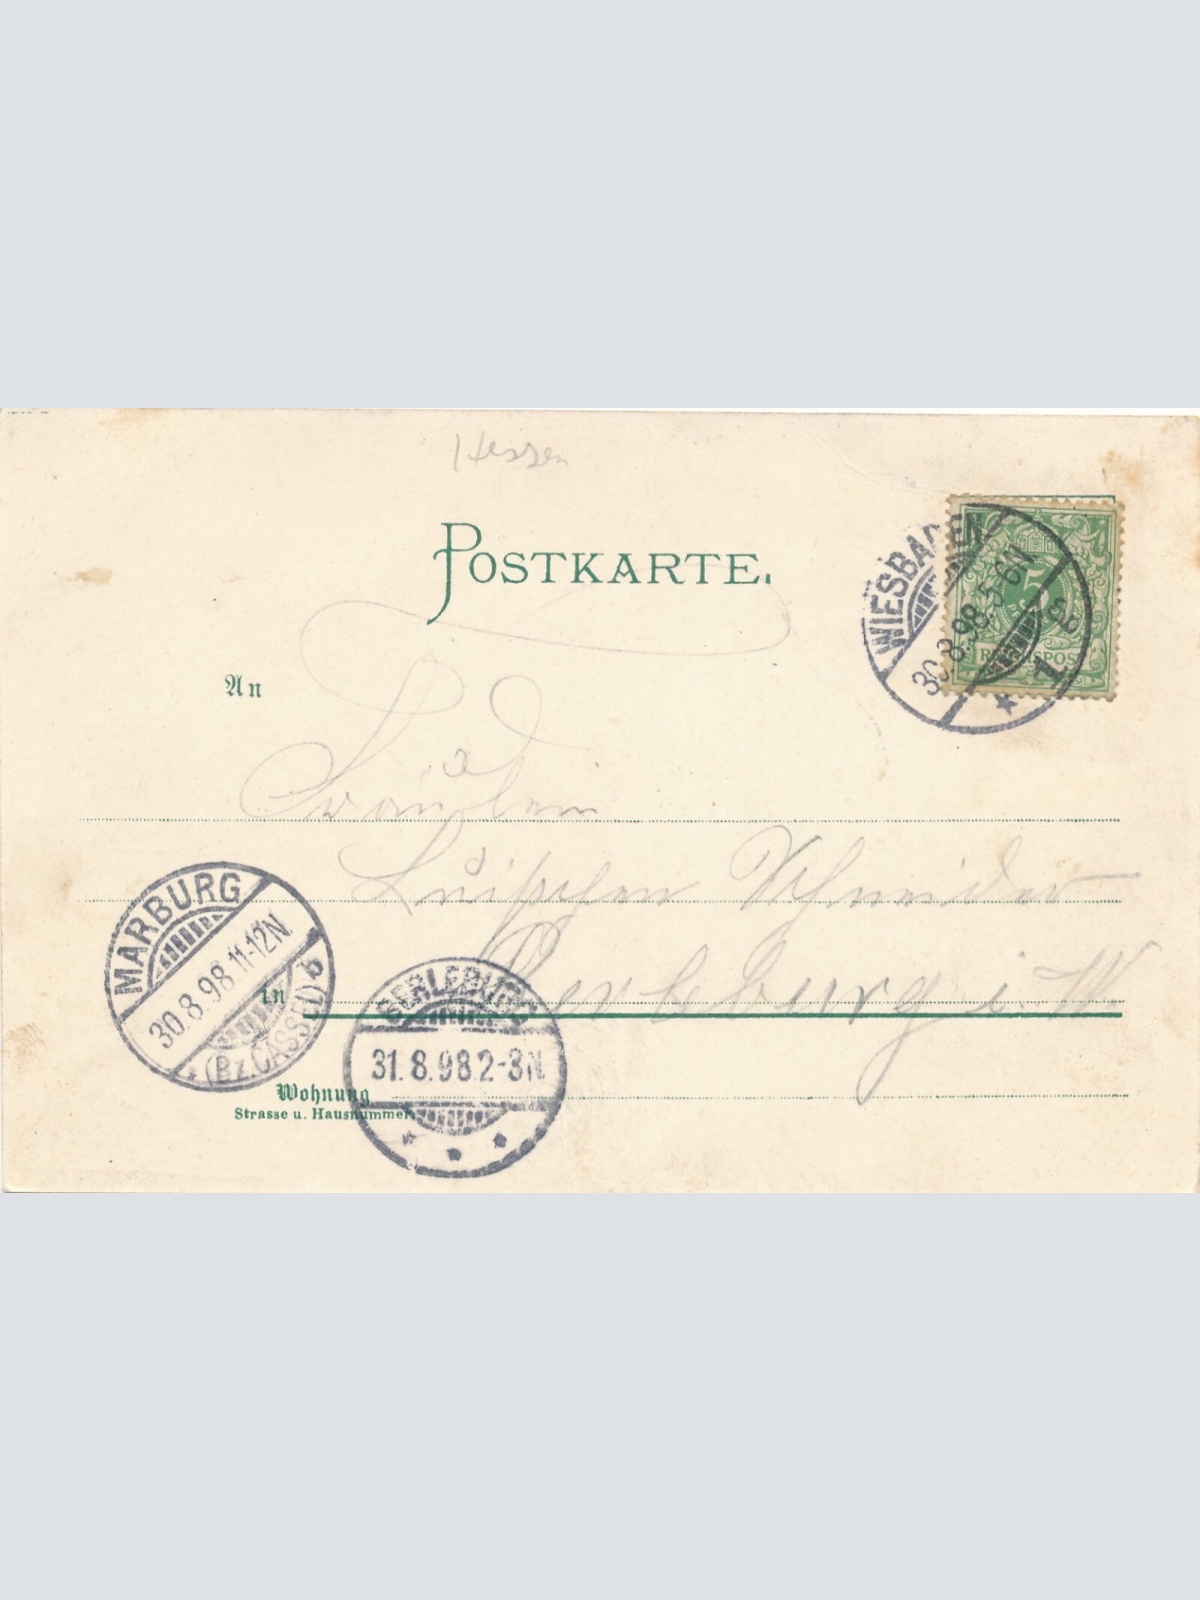 Hessen
POSTKARTE.
WIESBADEN
30.8.98.5-6N.
* 1
5
REICHSPOST
An
Fräulein
Luischen Schneider
MARBURG
30.8.98 11-12N.
* (Bz. CASSEL) b
In
Berleburg i. W.
BERLEBURG
31.8.98 2-3N.
* * *
Wohnung
Strasse u. Hausnummer.